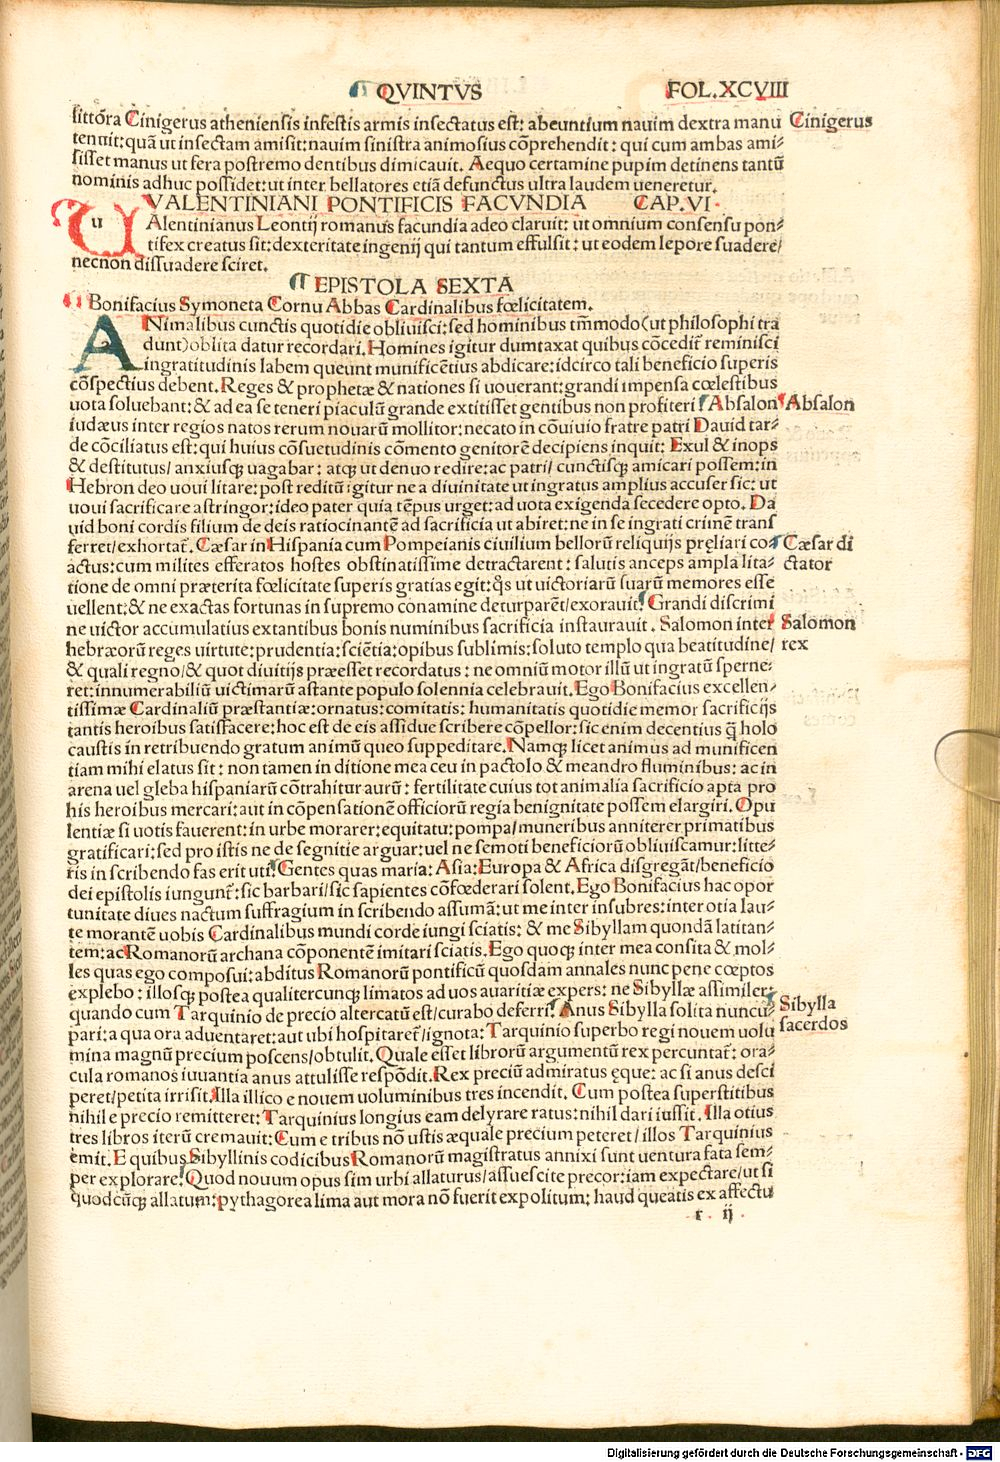 QVINTVS FOL.XCVIII
littõra Cinigerus atheniensis infestis armis insectatus est: abeuntium nauim dextra manu
Cinigerus
tenuit:quã ut insectam amisit:nauim sinistra animosius cõprehendit: qui cum ambas ami⸗
sisset manus ut fera postremo dentibus dimicauit. Aequo certamine pupim detinens tantũ
nominis adhuc possidet:ut inter bellatores etiã defunctus ultra laudem ueneretur.
VALENTINIANI PONTIFICIS FACVNDIA CAP.VI.
u
VAlentinianus Leontij romanus facundia adeo claruit: ut omnium consensu pon⸗
tifex creatus sit:dexteritate ingenij qui tantum effulsit: ut eodem lepore suadere/
necnon dissuadere sciret.
¶ EPISTOLA SEXTA
¶ Bonifacius Symoneta Cornu Abbas Cardinalibus fœlicitatem.
ANimalibus cunctis quotidie obliuisci:sed hominibus tm̃modo(ut philosophi tra
dunt)oblita datur recordari.Homines igitur dumtaxat quibus cõcedit᷑ reminisci
ingratitudinis labem queunt munificẽtius abdicare:idcirco tali beneficio superis
cõspectius debent.Reges & prophetæ & nationes si uouerant:grandi impensa cœlestibus
uota soluebant:& ad ea se teneri piaculũ grande extitisset gentibus non profiteri ¶Absalon
¶Absalon
iudæus inter regios natos rerum nouarũ mollitor:necato in cõuiuio fratre patri Dauid tar⸗
de cõciliatus est:qui huius cõsuetudinis cõmento genitorẽ decipiens inquit: Exul & inops
& destitutus/ anxiusq; uagabar: atq; ut denuo redire:ac patri/ cunctisq; amicari possem:in
Hebron deo uoui litare:post reditũ igitur ne a diuinitate ut ingratus amplius accuser sic: ut
uoui sacrificare astringor:ideo pater quia tẽpus urget:ad uota exigenda secedere opto. Da
uid boni cordis filium de deis ratiocinantẽ ad sacrificia ut abiret:ne in se ingrati crimẽ trans
ferret/exhortat᷑. Cæsar in Hispania cum Pompeianis ciuilium bellorũ reliquijs pręliari co⸗
¶Cæsar di
actus:cum milites efferatos hostes obstinatissime detractarent: salutis anceps ampla lita⸗
ctator
tione de omni præterita fœlicitate superis gratias egit:q̃s ut uictoriarũ suarũ memores esse
uellent:& ne exactas fortunas in supremo conamine deturparẽt/exorauit¶Grandi discrimi
ne uictor accumulatius extantibus bonis numinibus sacrificia instaurauit. Salomon inter
Salomon
hebræorũ reges uirtute:prudentia:sciẽtia:opibus sublimis:soluto templo qua beatitudine/
rex
& quali regno/& quot diuitijs præesset recordatus: ne omniũ motor illũ ut ingratũ sperne⸗
ret:innumerabiliũ uictimarũ astante populo solennia celebrauit.Ego Bonifacius excellen⸗
tissimæ Cardinaliũ præstantiæ:ornatus:comitatis: humanitatis quotidie memor sacrificijs
tantis heroibus satisfacere:hoc est de eis assidue scribere cõpellor:sic enim decentius q̃ holo
caustis in retribuendo gratum animũ queo suppeditare.Namq; licet animus ad munificen
tiam mihi elatus sit: non tamen in ditione mea ceu in pactolo & meandro fluminibus: ac in
arena uel gleba hispaniarũ cõtrahitur aurũ: fertilitate cuius tot animalia sacrificio apta pro
his heroibus mercari:aut in cõpensationẽ officiorũ regia benignitate possem elargiri. Opu
lentiæ si uotis fauerent:in urbe morarer:equitatu:pompa/muneribus anniterer primatibus
gratificari:sed pro istis ne de segnitie arguar:uel ne semoti beneficiorũ obliuiscamur:litte⸗
ris in scribendo fas erit uti¶Gentes quas maria: Asia:Europa & Africa disgregãt/beneficio
dei epistolis iungunt᷑:sic barbari/sic sapientes cõfœderari solent.Ego Bonifacius hac opor
tunitate diues nactum suffragium in scribendo assumã:ut me inter insubres:inter otia lau⸗
te morantẽ uobis Cardinalibus mundi corde iungi sciatis: & me Sibyllam quondã latitan⸗
tem:ac Romanorũ archana cõponentẽ imitari sciatis.Ego quoq; inter mea consita & mol⸗
les quas ego composui:abditus Romanorũ pontificũ quosdam annales nunc pene cœptos
explebo: illosq; postea qualitercunq; limatos ad uos auaritiæ expers: ne Sibyllæ assimiler:
quando cum Tarquinio de precio altercatũ est/curabo deferri¶Anus Sibylla solita nuncu⸗
¶Sibylla
pari:a qua ora aduentaret:aut ubi hospitaret᷑/ignota:Tarquinio superbo regi nouem uolu
sacerdos
mina magnũ precium poscens/obtulit. Quale esset librorũ argumentũ rex percuntat᷑: ora⸗
cula romanos iuuantia anus attulisse respõdit.Rex preciũ admiratus ęque: ac si anus desci
peret/petita irrisit.Illa illico e nouem uoluminibus tres incendit. Cum postea superstitibus
nihil e precio remitteret:Tarquinius longius eam delyrare ratus:nihil dari iussit. Illa otius
tres libros iterũ cremauit:Cum e tribus nõ ustis æquale precium peteret/illos Tarquinius
emit.E quibus Sibyllinis codicibus Romanorũ magistratus annixi sunt uentura fata sem⸗
per explorare¶Quod nouum opus sim urbi allaturus/assuescite precor:iam expectare/ut si
quodcũq; allatum:pythagorea lima aut mora nõ fuerit expolitum: haud queatis ex affectu
r ij
Digitalisierung gefördert durch die Deutsche Forschungsgemeinschaft - DFG